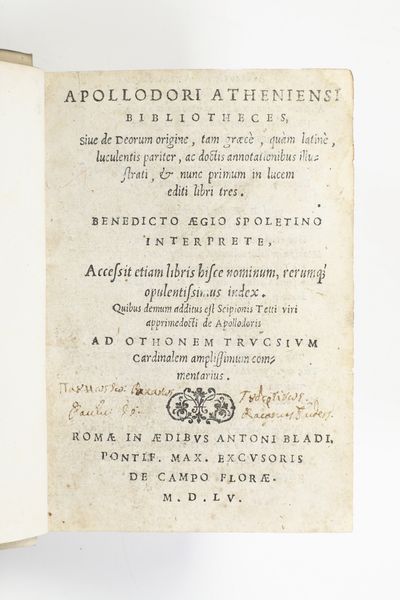 APOLLODORI ATHENIENSI
BIBLIOTHECES,
siue de Deorum origine, tam græcè, quàm latinè,
luculentis pariter, ac doctis annotationibus illu-
strati, & nunc primum in lucem
editi libri tres.
BENEDICTO ÆGIO SPOLETINO
INTERPRETE,
Accessit etiam libris hisce nominum, rerumq́
opulentissimus index.
Quibus demum additus est Scipionis Tetti viri
apprimedocti de Apollodoris
AD OTHONEM TRVCSIVM
Cardinalem amplissimum com-
mentarius.
ROMÆ IN ÆDIBVS ANTONI BLADI,
PONTIF. MAX. EXCVSORIS
DE CAMPO FLORÆ.
M. D. LV.